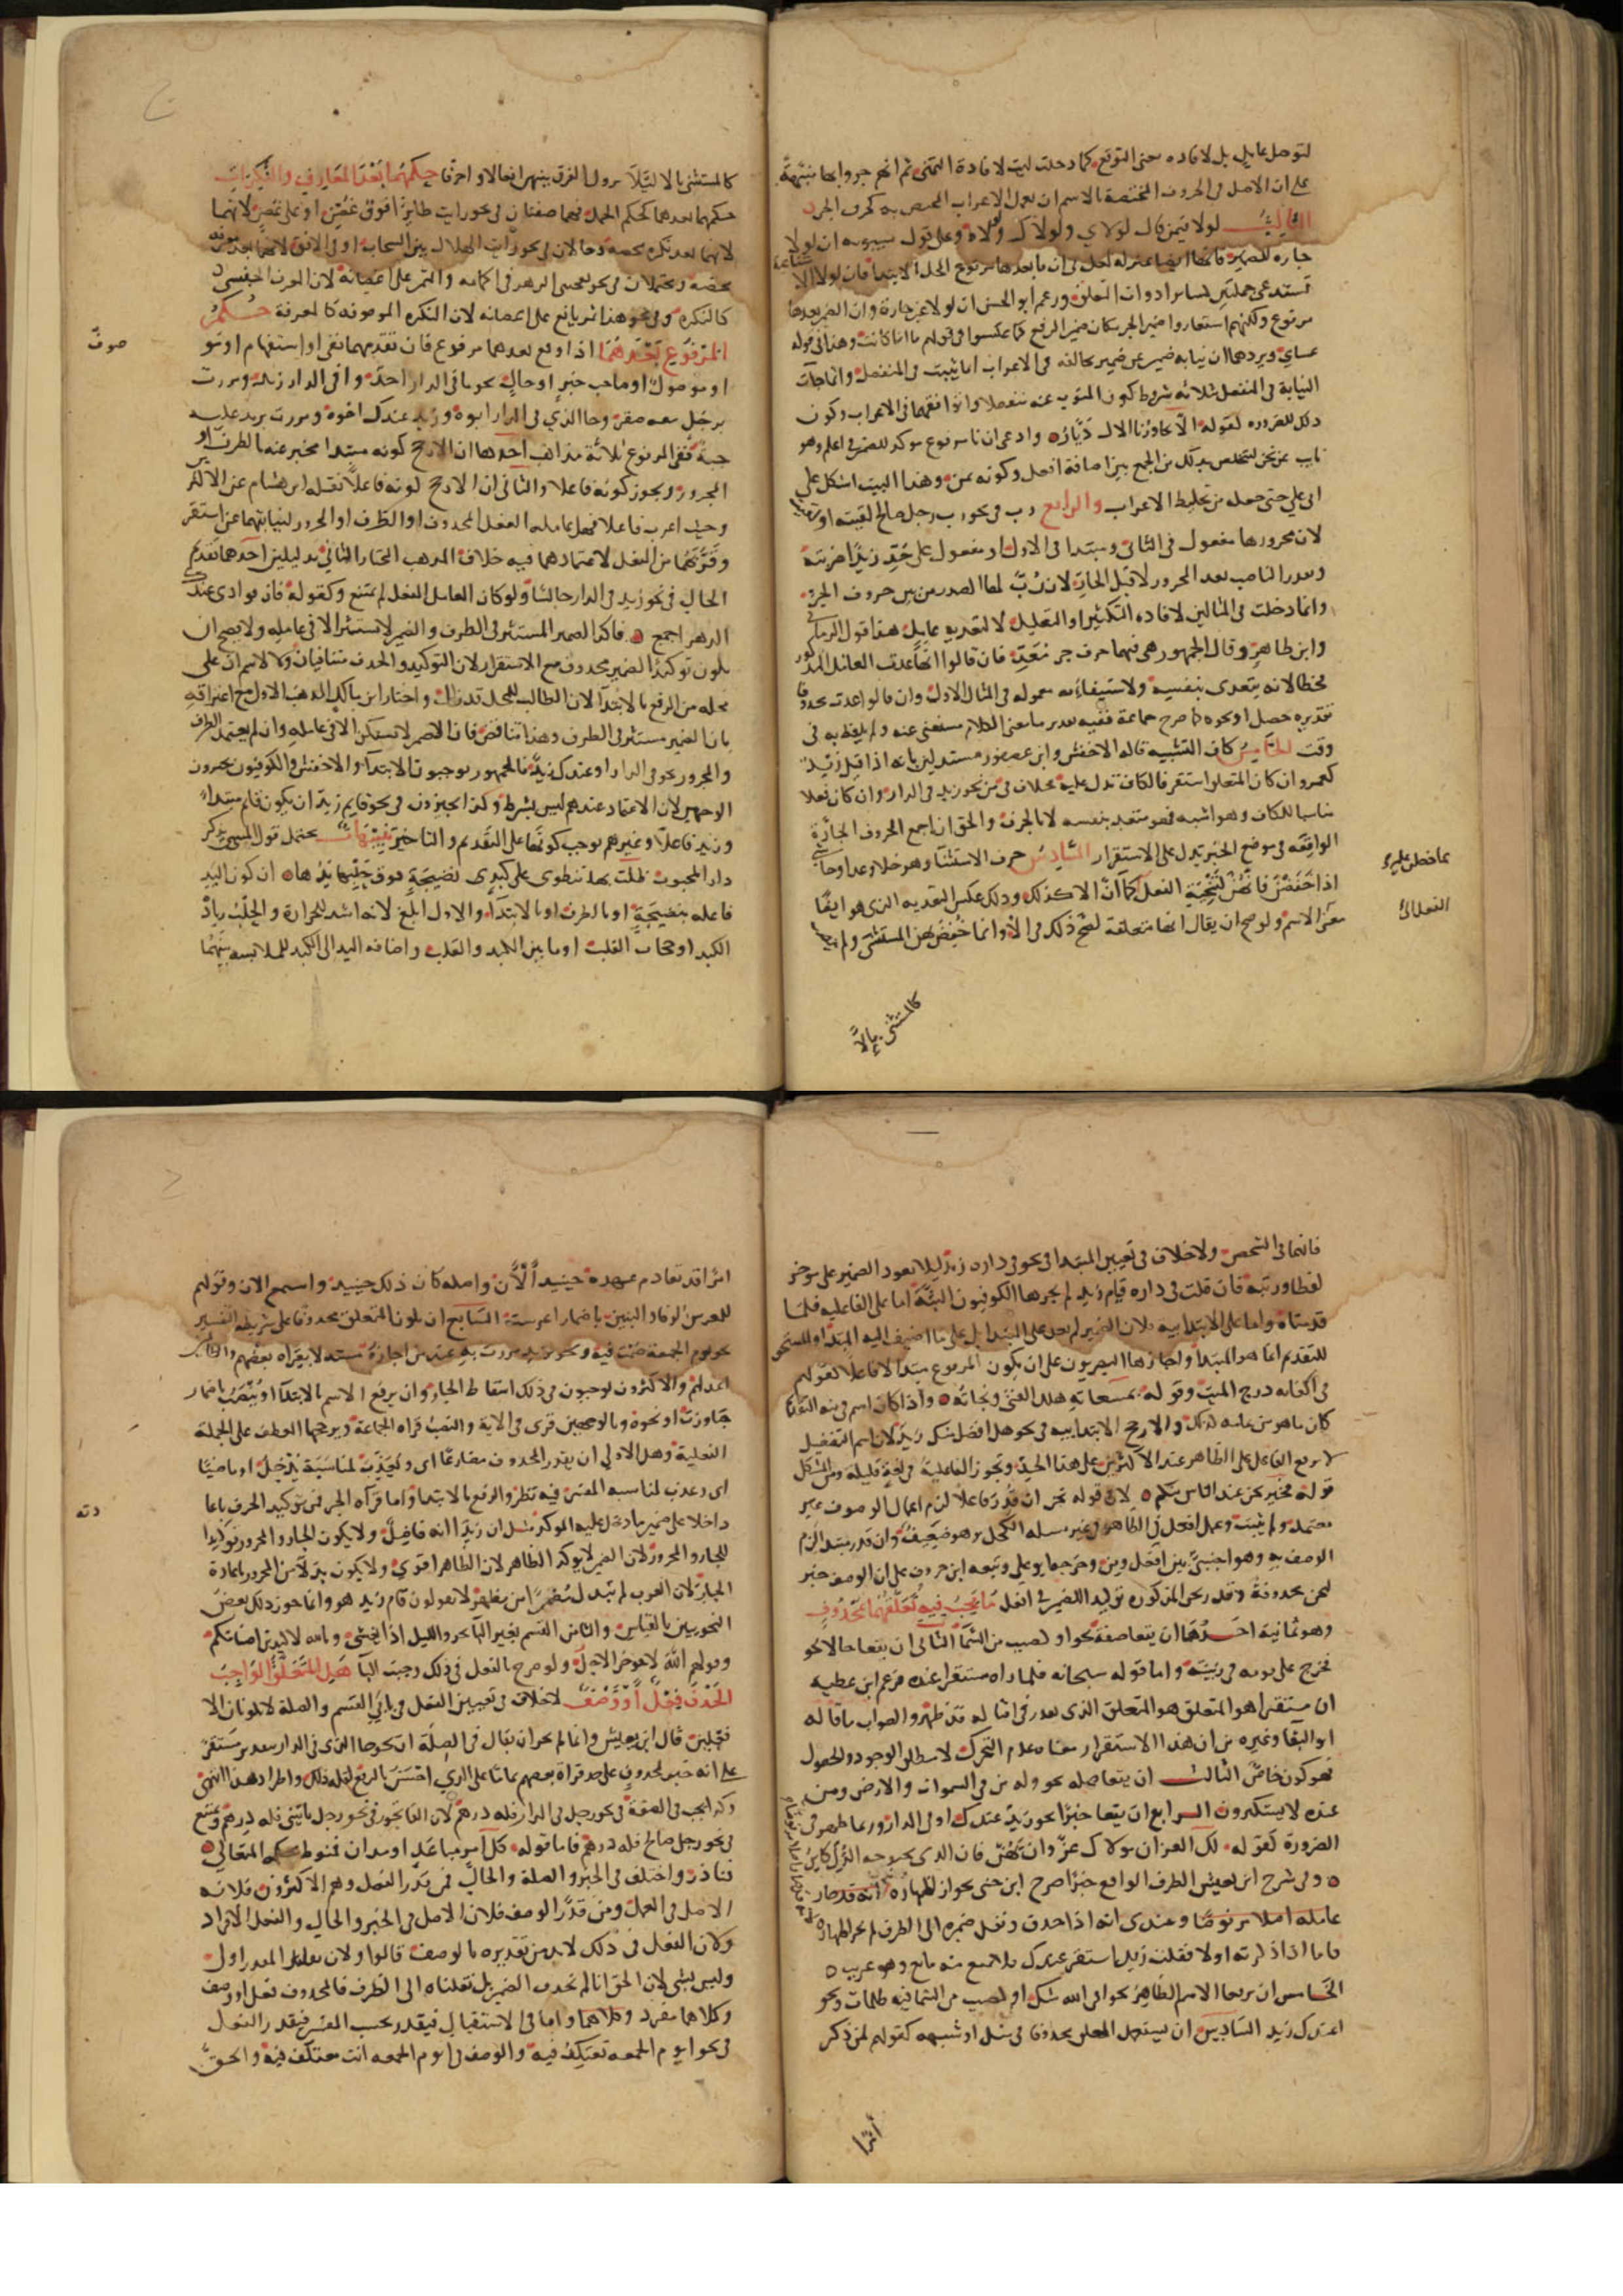 لتوصل عاملٍ بل لافاده معنى التوقع كما دخلت ليت لافادة التمنى ثم انهم جروا بها منبهة
على ان الاصل فى الحروف المختصة بالاسم ان تعمل الاعراب المختص به كحرف الجر
الثالث لولا فيمن قال لولاي ولولاك ولولاه وعلى قول سيبويه ان لولا
جاره للضمير فانها ايضا بمنزله لعل فى ان ما بعدها مرفوع المحل بالابتدا فان لولا الامتناعية
تستدعى جملتين كسائر ادوات التعليق وزعم ابو الحسن ان لولا غير جارة وان الضمير بعدها
مرفوع ولكنهم استعاروا ضمير الجر مكان ضمير الرفع كما عكسوا فى قولهم ما انا كانت وهذا فى قوله
عساي ويردهما ان نيابه ضمير عن ضمير يخالفه فى الاعراب انما يثبت فى المنفصل وانما جات
النيابة فى المتصل بثلاثه شروط كون المنوب عنه منفصلا وتوافقهما فى الاعراب وكون
ذلك للضروره كقوله الا يجاورنا الاك ديار وادعى ان نا مرفوع موكد للضمير فى اعلم وهو
نايب عن نحن لتتخلص بذلك من الجمع بين اضافة افعل وكونه بمن وهذا البيت اشكل على
ابى على حتى جعله من تخليط الاعراب والرابع رب فى نحو رب رجل صالح لقيته او لقيت
لان مجرورها مفعول فى الثانى ومبتدا فى الاول او مفعول على حد زيدا ضربته
ويقدر الناصب بعد المجرور لا قبل الجار لان رب لها الصدر من بين حروف الجر
وانما دخلت فى المثالين لافاده التكثير او التقليل لا لتعديه عامل هذا قول الرماني
وابن طاهر وقال الجمهور هى فيهما حرف جر معد فان قالوا انها عدت العامل المذكور
فخطا لانه يتعدى بنفسه ولاستيفائه معموله فى المثال الاول وان قالوا عدت محذوفا
تقديره حصل او نحوه كما صرح جماعة ففيه تقدير ما معنى الكلام مستغنى عنه ولم يلفظ به فى
وقت الخامس كاف التشبيه قاله الاخفش وابن عصفور مستدلين بانه اذا قيل زيد
كعمرو ان كان المتعلق استقر فالكاف لا تدل عليه بخلاف فى من نحو زيد فى الدار وان كان فعلا
مناسبا للكاف وهو اشبه فهو متعد بنفسه لا بالحرف والحق ان جميع الحروف الجارة
الواقعه فى موضع الخبر تدل على الاستقرار السادس حرف الاستثنا وهو خلا وعدا وحاشى
اذا خفضن فانهن لتنحية الفعل كما ان الا كذلك وذلك عكس التعديه الذى هو ايصال
معنى الاسم ولو صح ان يقال انها متعلقة لصح ذلك فى الا وانما خفض بهن المستثنى ولم ينصب
كالمستثنى بالا
كالمستثنى بالا ليلا يزول الفرق بينهن افعالا واحرفا حكمهما بعد المعارف والنكرات
حكمهما بعدهما كحكم الجمل فهما صفتان فى نحو رايت طايرا فوق غصن او على غصن لانهما
لانهما بعد نكرة محضه وحالان فى نحو رايت الهلال بين السحاب او فى الافق لانهما بعد معرفة
محضه ومحتملان فى نحو يعجبنى الزهر فى اكمامه والثمر على اغصانه لان المعرف الجنسى
كالنكره وفى نحو هذا ثمر يانع على اغصانه لان النكره الموصوفه كالمعرفة حكم
المرفوع بعدهما اذا وقع بعدهما مرفوع فان تقدمهما نفى او استفهام او موصوف
او موصول او صاحب خبر او حال نحو ما فى الدار احد وا فى الدار زيد ومررت
برجل معه صقر وجا الذي فى الدار ابوه وزيد عندك اخوه ومررت بزيد عليه
جبة ففى المرفوع ثلاثة مذاهب احدها ان الارجح كونه مبتدا مخبر عنه بالظرف او
المجرور ويجوز كونه فاعلا والثانى ان الارجح كونه فاعلا نقله ابن هشام عن الاكثر
وحيث اعرب فاعلا فهل عامله الفعل المحذوف او الظرف او المجرور لنيابتهما عن استقر
وقربهما من الفعل لاعتمادهما فيه خلاف المذهب المختار الثانى بدليلين احدهما تقديم
الحال فى نحو زيد فى الدار جالسا ولو كان العامل الفعل لم يمتنع وكقوله فان فوادى عندك
الدهر اجمع فاكد الضمير المستتر فى الظرف والضمير لا يستتر الا فى عامله ولا يصح ان
يكون توكيدا لضمير محذوف مع الاستقرار لان التوكيد والحذف متنافيان ولا لاسم ان على
محله من الرفع بالابتدا لان الطالب للمحل قد زال واختار ابن مالك المذهب الاول مع اعترافه
بان الضمير مستتر فى الظرف وهذا تناقض فان الضمير لا يستكن الا فى عامله وان لم يعتمد الظرف
والمجرور نحو فى الدار او عندك زيد فالجمهور يوجبون الابتدا والاخفش والكوفيون يجيزون
الوجهين لان الاعتماد عندهم ليس بشرط وكذا يجيزون فى نحو قايم زيد ان يكون قايم مبتدا
وزيد فاعلا وغيرهم يوجب كونهما على التقديم والتاخير تنبيهات يحتمل قول المتنبى يذكر
دار المحبوب ظلت بها تنطوى على كبدٍ نضيجةٍ فوق خلبها يدها ان تكون اليد
فاعله بنضيجةٍ او بالظرف او بالابتدا والاول ابلغ لانه اشد للحرارة والخلب زيادة
الكبد او حجاب القلب او ما بين الكبد والقلب واضافه اليد الى الكبد للملابسه بينهما
صوف
فانهما فى الشخص ولا خلاف فى تعيين المبتدا فى نحو فى داره زيد ليلا يعود الضمير على موخر
لفظا ورتبة فان قلت فى داره قيام زيد لم يجزها الكوفيون البتة اما على الفاعليه فلما
قدمناه واما على الابتداييه فلان الضمير لم يعد على المبتدا بل على ما اضيف اليه المبتدا والمستحق
للتقديم انما هو المبتدا واجازها البصريون على ان يكون المرفوع مبتدا لا فاعلا كقولهم
فى اكفانه درج الميت وقوله بمسعاته هلك الفتى ونجاته واذا كان اسم فى نيه التقديم
كان ما هو من تمامه كذلك والارجح الابتداييه فى نحو هل افضل منك زيد لان اسم التفضيل
لا يرفع الفاعل على الظاهر عند الاكثرين على هذا الحد وتجوز الفاعلية فى لغة قليله ومن المشكل
قوله فخير نحن عند الناس منكم لان قوله نحن ان قدر فاعلا لزم اعمال الوصف غير
معتمد ولم يثبت وعمل افعل فى الظاهر فى غير مسله الكحل وهو ضعيف وان قدر مبتدا لزم
الوصف به وهو اجنبى بين افعل ومن وخرجها ابو على وتبعه ابن خروف على ان الوصف خبر
لنحن محذوفة وقدر نحن المذكوره توكيد للضمير فى افعل ما يجب فيه تعلقهما بمحذوف
وهو ثمانية احدها ان يقعا صفة نحو او كصيب من السما الثانى ان يقعا حالا نحو
فخرج على قومه فى زينته واما قوله سبحانه فلما راه مستقرا عنده فزعم ابن عطيه
ان مستقرا هو المتعلق هو المتعلق الذى يقدر فى امثاله قد ظهر والصواب ما قاله
ابو البقا وغيره من ان هذا الاستقرار معناه عدم التحرك لا مطلق الوجود والحصول
فهو كون خاص الثالث ان يقعا صله نحو وله من فى السموات والارض ومن
عنده لا يستكبرون الرابع ان يقعا خبرا نحو زيد عندك او فى الدار وربما ظهر فى
الضرورة كقوله لك العز ان مولاك عز وان يهن فانت لدى بحبوحه الهون كاين
وفى شرح ابن يعيش الظرف الواقع خبرا صرح ابن جنى بجواز اظهاره
عامله اصلا مرفوضا وعندى انه اذا حذف ونقل ضميره الى الظرف لم يجز اظهاره
فاما اذا ذكرته اولا فقلت زيد استقر عندك فلا يمنع منه مانع وهو غريب
الخامس ان يرفعا الاسم الظاهر نحو افى الله شك او كصيب من السما فيه ظلمات ونحو
اعندك زيد السادس ان يستعمل المتعلق محذوفا فى مثل او شبهه كقولهم لمن ذكر
امرا
امرا قد تقادم عهده حينيذ الآن واصله كان ذلك حينيذ واسمع الان وقولهم
للمعرس بالرفا والبنين باضمار اعرست السابع ان يكون المتعلق محذوفا على شريطه التفسير
نحو يوم الجمعة صمت فيه ونحو بزيد مررت به عند من اجازه مستدلا بقراه بعضهم وللظالمين
اعد لهم والاكثرون يوجبون فى ذلك اسقاط الجار وان يرفع الاسم بالابتدا او ينصب باضمار
جاوزت او نحوه وبالوجهين قرى فى الاية والنصب قراه الجماعة ويرجحها العطف على الجملة
الفعلية وهل الاولى ان يقدر المحذوف مضارعا اى ويعذب لمناسبة يدخل او ماضيا
اى وعذب لمناسبه المفسر فيه نظر والرفع بالابتدا واما قراه الجر فمن توكيد الحرف باعادته
داخلا على ضمير ما دخل عليه الموكد مثل ان زيدا انه فاضل ولا يكون الجار والمجرور توكيدا
للجار والمجرور لان الضمير لا يوكد الظاهر لان الظاهر اقوى ولا يكون بدلا من المجرور باعادة
الجار لان العرب لم تبدل مضمرا من مظهر لا يقولون قام زيد هو وانما جوز ذلك بعض
النحويين بالقياس والثامن القسم بغير البا نحو والليل اذا يغشى وتالله لاكيدن اصنامكم
وقولهم الله لا يوخر الاجل ولو صرح بالفعل فى ذلك وجبت البا هل المتعلق الواجب
الحذف فعل او وصف لا خلاف فى تعيين الفعل فى بابى القسم والصلة لانهما لا يكونان الا
جملتين قال ابن يعيش وانما لم يجز ان يقال فى الصلة ان نحو جا الذى فى الدار بتقدير مستقر
على انه خبر لمحذوف على حد قراة بعضهم تماما على الذي احسن بالرفع لقله ذلك واطراد هذا انتهى
وكذا يجب فى الصفة فى نحو رجل فى الدار فله درهم لان الفا تجوز فى نحو رجل ياتينى فله درهم وتمتنع
فى نحو رجل صالح فله درهم فاما قوله كل امر مباعد او مدان فمنوط بحكمه المتعالى
فنادر واختلف فى الخبر والصفة والحال فمن قدر الفعل وهم الاكثرون فلانه
الاصل فى العمل ومن قدر الوصف فلان الاصل فى الخبر والحال والنعت الافراد
ولان الفعل فى ذلك لا بد من تقديره بالوصف قالوا ولان تقليل المقدر اولى
وليس بشى لان الحق انا لم نحذف الضمير بل نقلناه الى الظرف فالمحذوف فعل او وصف
وكلاهما مفرد وكلاهما واما فى الاشتغال فيقدر بحسب المفسر فيقدر الفعل
فى نحو ايوم الجمعه تعتكف فيه والوصف فى ايوم الجمعه انت معتكف فيه والحق